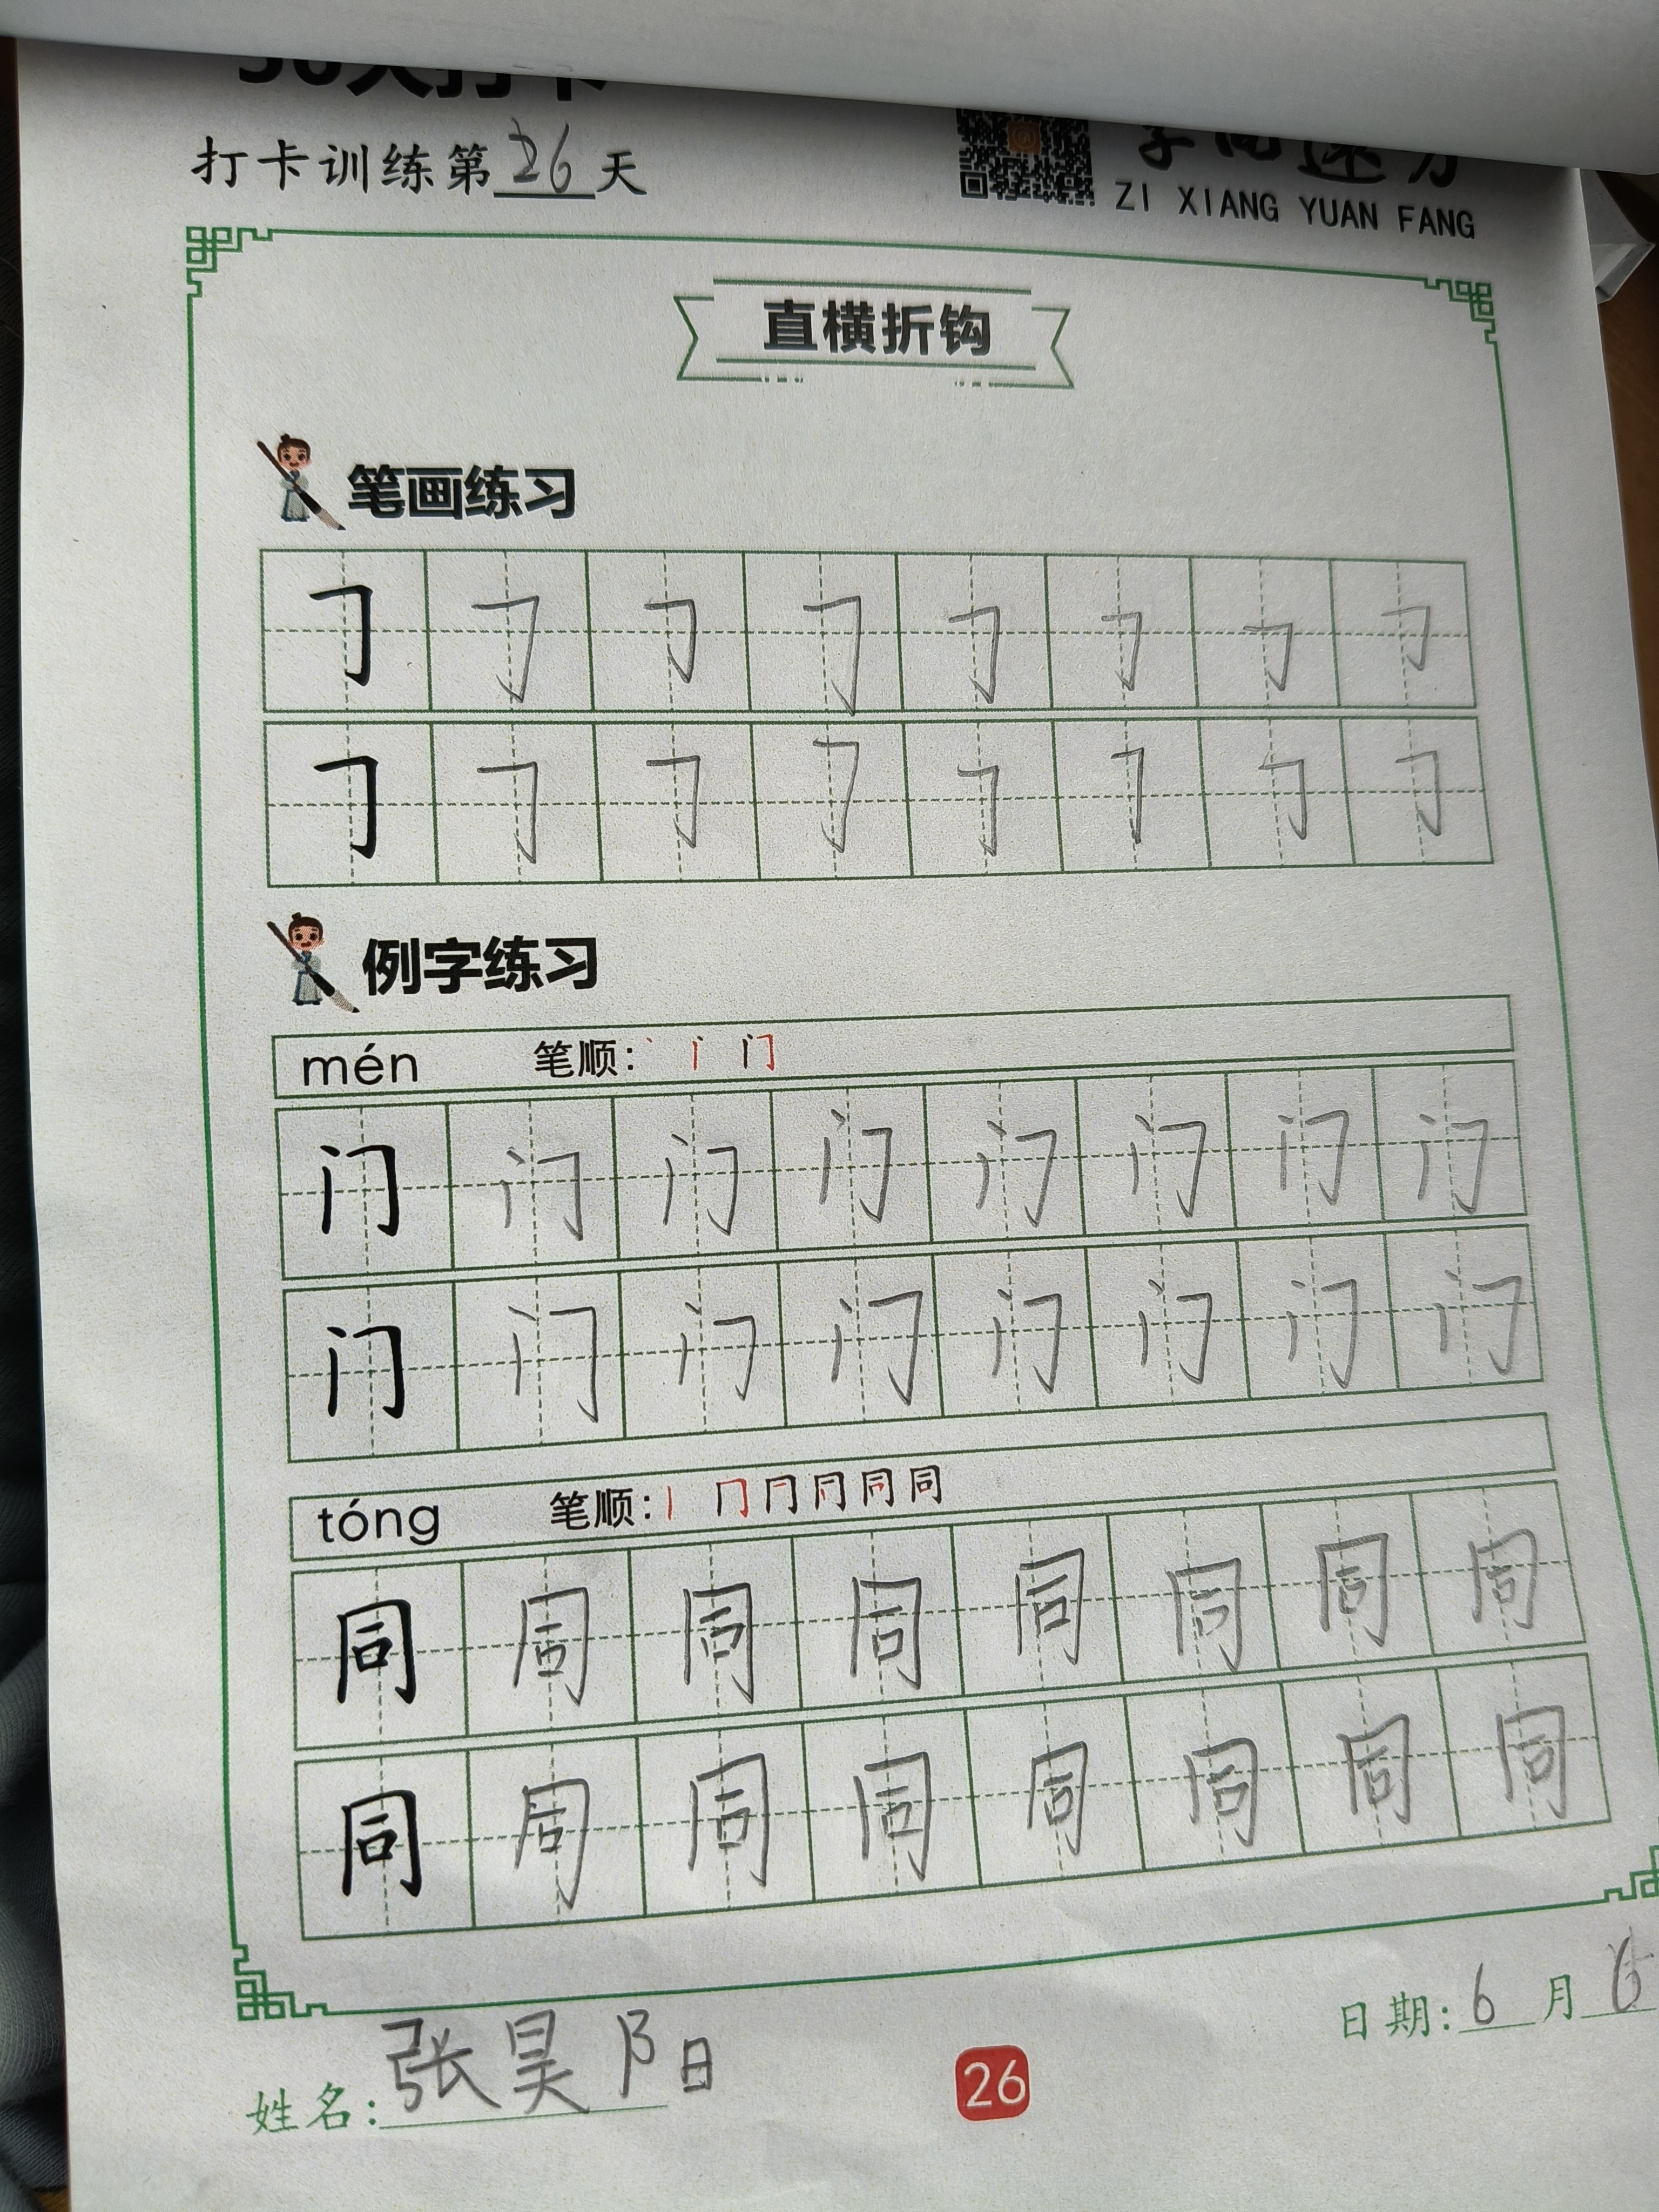 打卡训练第26天
ZI XIANG YUAN FANG
直横折钩
笔画练习
例字练习
mén 笔顺: 门
门 门 门 门 门 门 门 门
门 门 门 门 门 门 门 门
tóng 笔顺: 丨 冂 同 同
同 同 同 同 同 同 同 同
同 同 同 同 同 同 同 同
姓名: 张昊阳
26
日期: 6月6